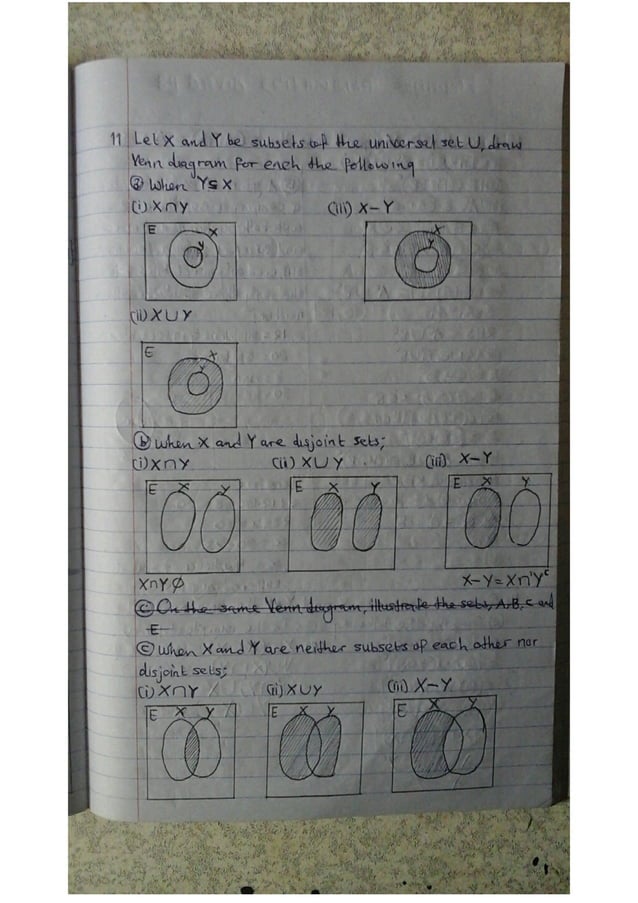 11 Let X and Y be subsets of the universal set U, draw
Venn diagram for each the following
(a) When Y⊆X
(i) X∩Y (iii) X–Y
E X Y
X Y
(ii) X∪Y
E X Y
(b) When X and Y are disjoint sets;
(i) X∩Y (ii) X∪Y (iii) X–Y
E X Y E X Y E X Y
X∩Y ∅ X–Y = X∩Yᶜ
(c) On the same Venn diagram, illustrate the sets, A, B, C and
E
(c) When X and Y are neither subsets of each other nor
disjoint sets;
(i) X∩Y (ii) X∪Y (iii) X–Y
E X Y E X Y E X Y